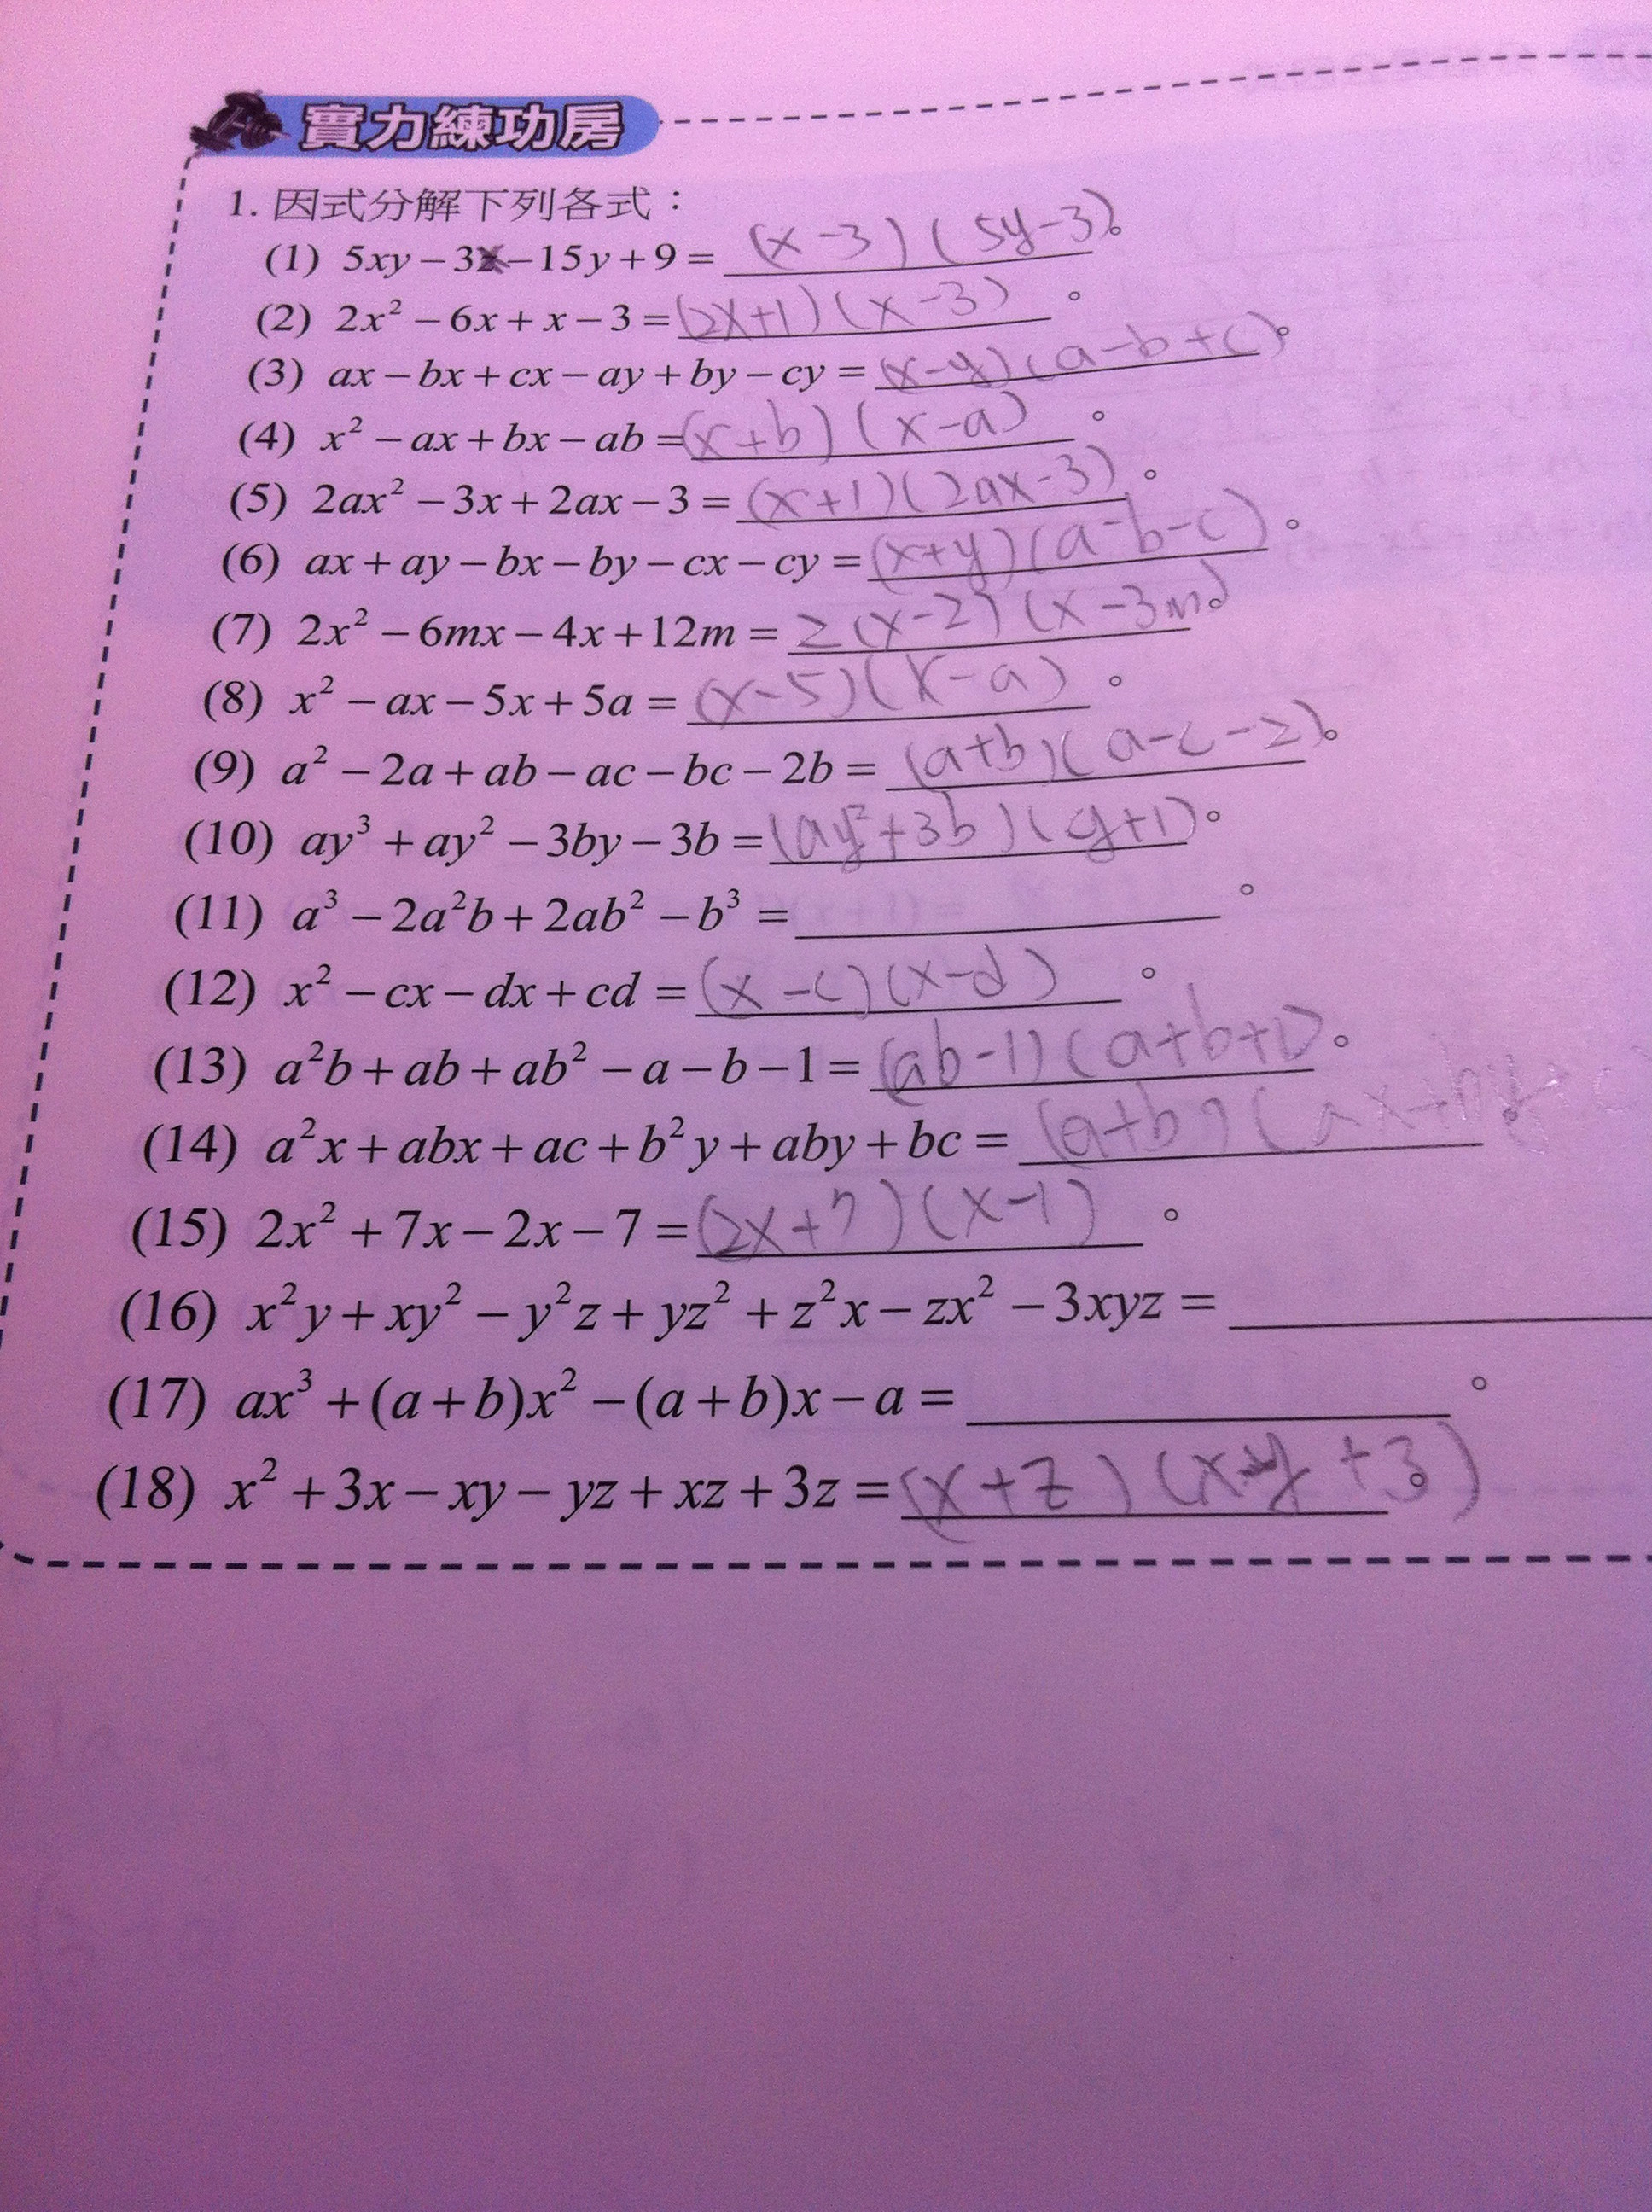 實力練功房
1. 因式分解下列各式：
(1) 5xy－3x－15y＋9＝(x－3)(5y－3)。
(2) 2x²－6x＋x－3＝(2x+1)(x－3)。
(3) ax－bx＋cx－ay＋by－cy＝(x－y)(a－b+c)。
(4) x²－ax＋bx－ab＝(x+b)(x－a)。
(5) 2ax²－3x＋2ax－3＝(x+1)(2ax－3)。
(6) ax＋ay－bx－by－cx－cy＝(x+y)(a－b－c)。
(7) 2x²－6mx－4x＋12m＝2(x－2)(x－3m)。
(8) x²－ax－5x＋5a＝(x－5)(x－a)。
(9) a²－2a＋ab－ac－bc－2b＝(a+b)(a－c－2)。
(10) ay³＋ay²－3by－3b＝(ay²+3b)(y+1)。
(11) a³－2a²b＋2ab²－b³＝。
(12) x²－cx－dx＋cd＝(x－c)(x－d)。
(13) a²b＋ab＋ab²－a－b－1＝(ab－1)(a+b+1)。
(14) a²x＋abx＋ac＋b²y＋aby＋bc＝(a+b)(ax+by+c
(15) 2x²＋7x－2x－7＝(2x+7)(x－1)。
(16) x²y＋xy²－y²z＋yz²＋z²x－zx²－3xyz＝
(17) ax³＋(a＋b)x²－(a＋b)x－a＝。
(18) x²＋3x－xy－yz＋xz＋3z＝(x+z)(x－y+3)。